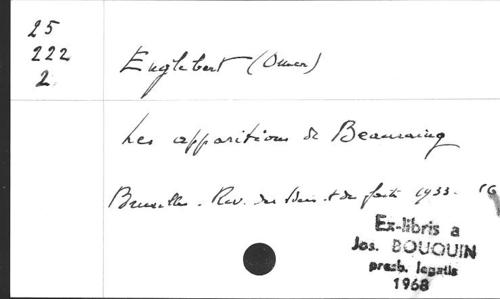 25
222
2
Englebert (Omer)
Les apparitions de Beauraing
Bruxelles. Rev. des Idées et des faits 1933. 16
Ex-libris a
Jos. BOUQUIN
presb. legatis
1968